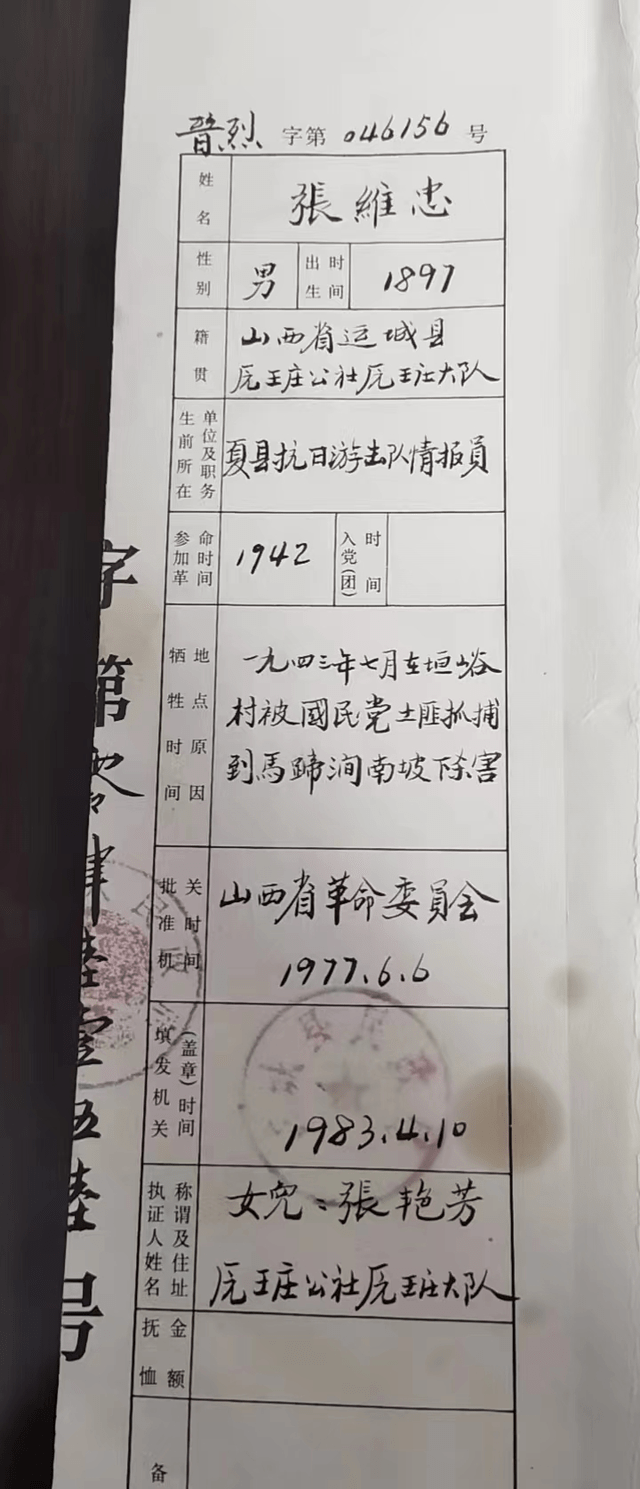 晋烈 字第 046156 号
姓名 張維忠
性别 男 出生时间 1897
籍贯 山西省运城县
厇王庄公社厇王庄大队
生前所在单位及职务 夏县抗日游击队情报员
参加革命时间 1942 入党(团)时间
牺牲时间地点原因 一九四三年七月在垣峪
村被國民党土匪抓捕
到馬蹄涧南坡下杀害
批准机关时间 山西省革命委員会
1977.6.6
填发机关(盖章)时间
1983.4.10
执证人姓名称谓及住址 女兒：張艳芳
厇王庄公社厇王庄大队
抚恤金额
备
字第零肆陸壹伍陸号